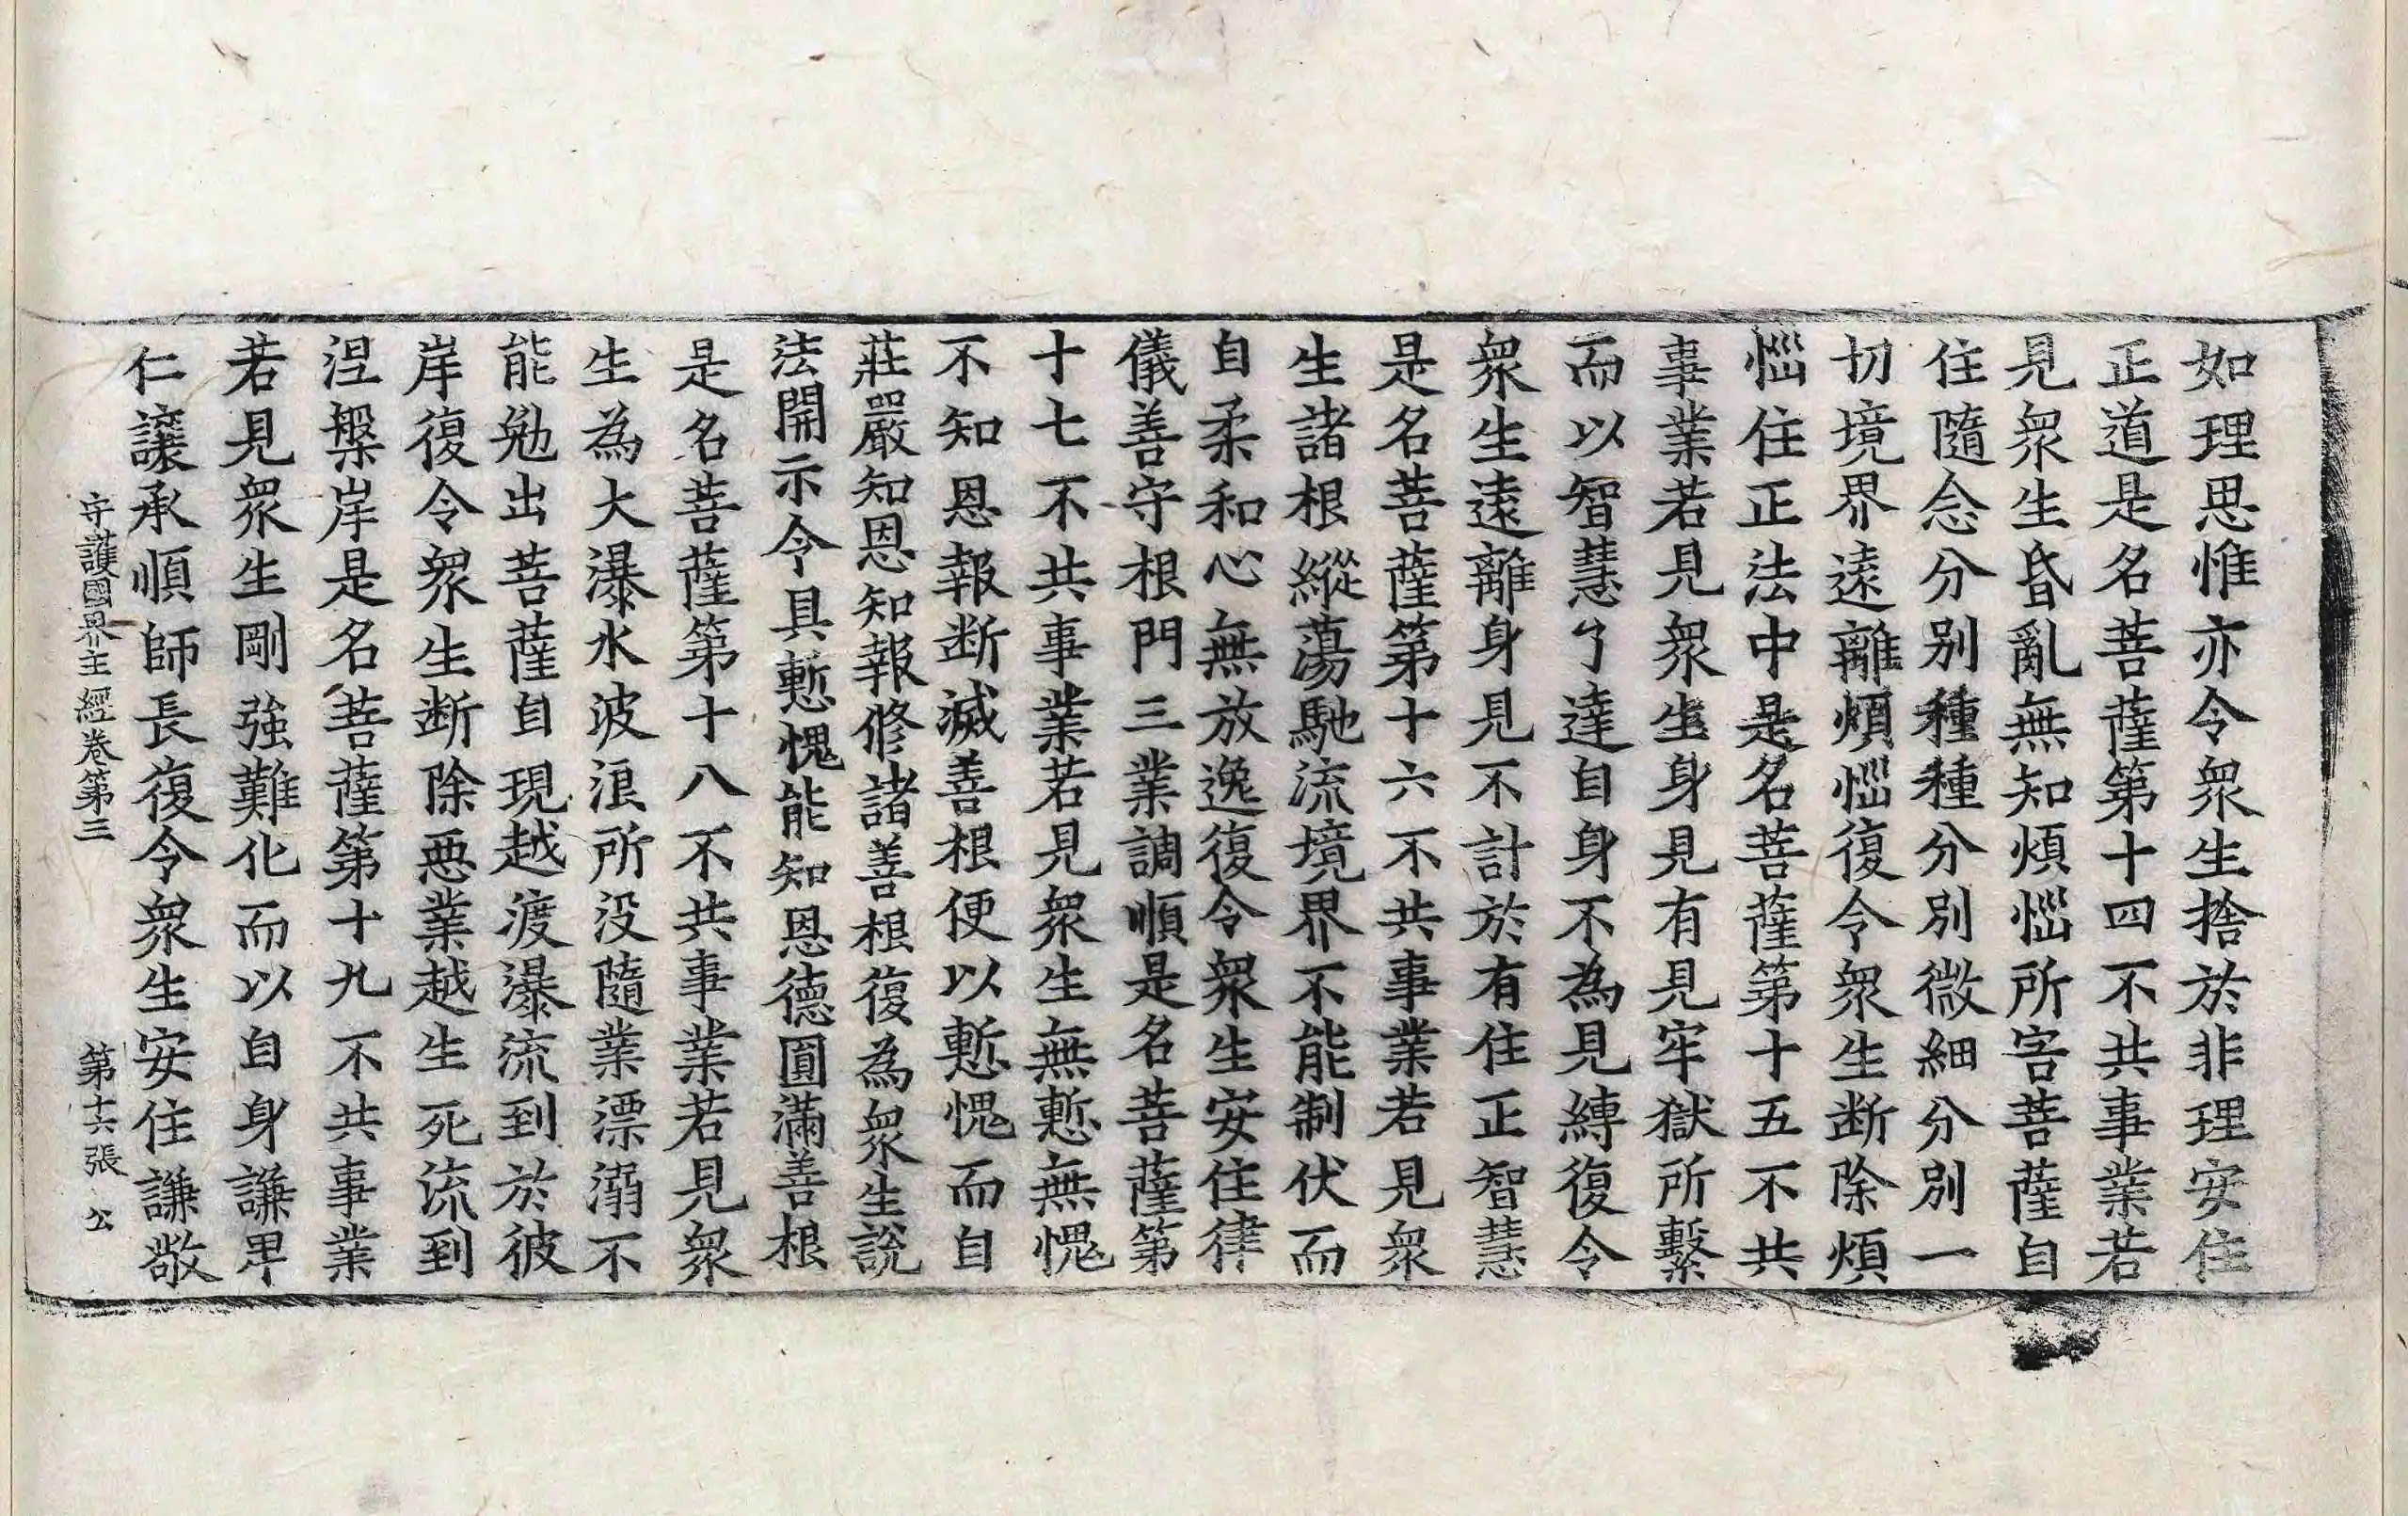 如理思惟亦令衆生捨於非理安住
正道是名菩薩第十四不共事業若
見衆生昏亂無知煩惱所害菩薩自
住隨念分别種種分別微細分別一
切境界遠離煩惱復令衆生断除煩
惱住正法中是名菩薩第十五不共
事業若見衆生身見有見牢獄所繫
而以智慧了達自身不為見縛復令
衆生遠離身見不計於有住正智慧
是名菩薩第十六不共事業若見衆
生諸根縱蕩馳流境界不能制伏而
自柔和心無放逸復令衆生安住律
儀善守根門三業調順是名菩薩第
十七不共事業若見衆生無慙無愧
不知恩報断滅善根便以慙愧而自
莊嚴知恩知報修諸善根復為衆生說
法開示令具慙愧能知恩德圓滿善根
是名菩薩第十八不共事業若見衆
生為大瀑水波浪所没隨業漂溺不
能勉出菩薩自現越渡瀑流到於彼
岸復令衆生断除惡業越生死流到
涅槃岸是名菩薩第十九不共事業
若見衆生剛強難化而以自身謙卑
仁讓承順師長復令衆生安住謙敬
守護國界主經卷第三　第十六張　公